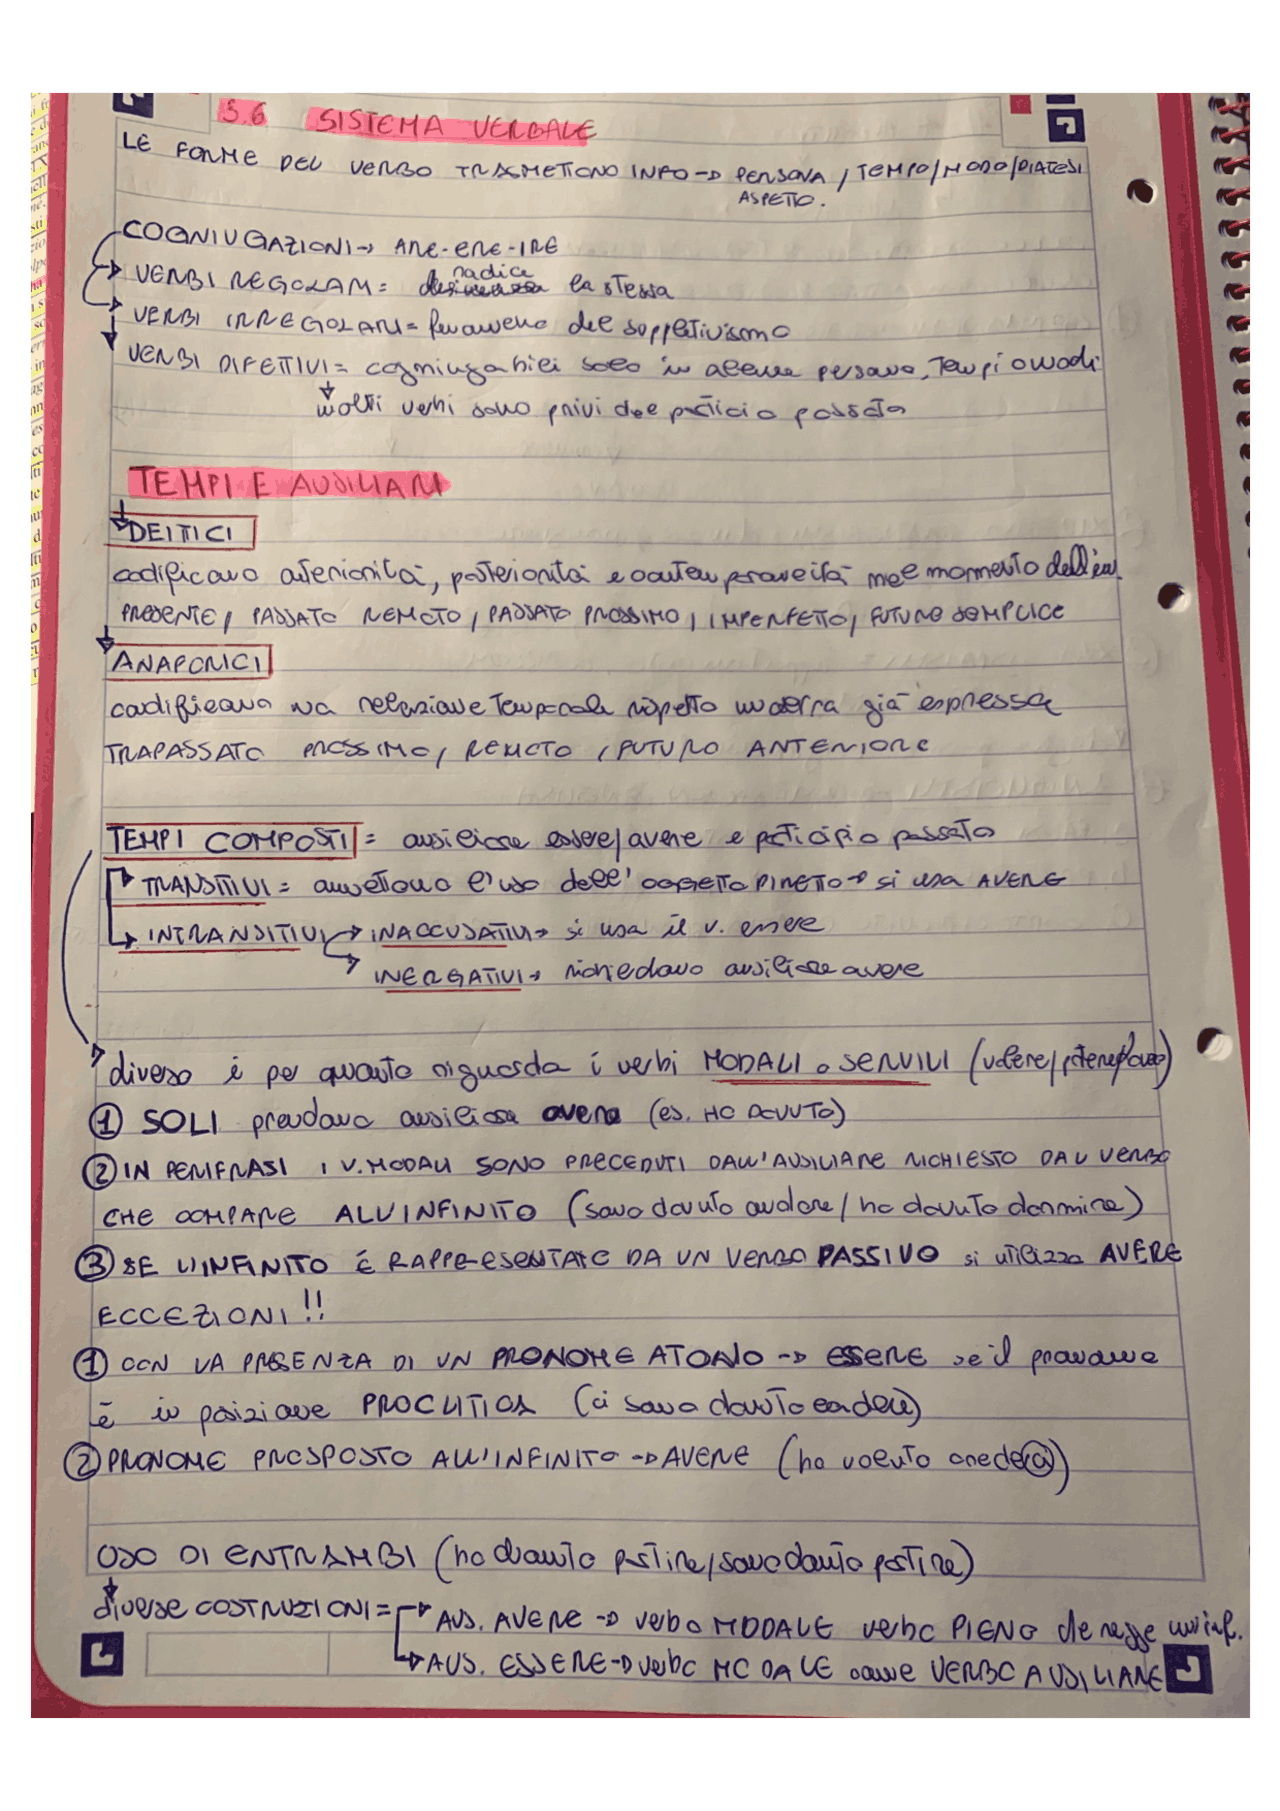 3.6 SISTEMA VERBALE
LE FORME DEL VERBO TRASMETTONO INFO → PERSONA / TEMPO / MODO / DIATESI
ASPETTO.
COGNIUGAZIONI → ARE-ERE-IRE
radice
VERBI REGOLARI = desinenza la stessa
VERBI IRREGOLARI = fenomeno del suppletivismo
VERBI DIFETTIVI = cogniugabili solo in alcune persone, tempi o modi
molti verbi sono privi del participio passato
TEMPI E AUSILIARI
DEITTICI
codificano anteriorità, posteriorità e contemporaneità nel momento dell'en.
PRESENTE, PASSATO REMOTO, PASSATO PROSSIMO, IMPERFETTO, FUTURO SEMPLICE
ANAFORICI
codificano una relazione temporale rispetto un'altra già espressa
TRAPASSATO PROSSIMO, REMOTO, FUTURO ANTERIORE
TEMPI COMPOSTI = ausiliare essere/avere e participio passato
TRANSITIVI = ammettono l'uso dell'OGGETTO DIRETTO → si usa AVERE
INTRANSITIVI → INACCUSATIVI → si usa il v. essere
INERGATIVI → richiedono ausiliare avere
diverso è per quanto riguarda i verbi MODALI o SERVILI (volere/potere/dovere)
① SOLI prendono ausiliare avere (es. HO DOVUTO)
② IN PERIFRASI I V. MODALI SONO PRECEDUTI DALL'AUSILIARE RICHIESTO DAL VERBO
CHE COMPARE ALL'INFINITO (sono dovuto andare / ho dovuto dormire)
③ SE L'INFINITO É RAPPRESENTATO DA UN VERBO PASSIVO si utilizza AVERE
ECCEZIONI!!
① CON LA PRESENZA DI UN PRONOME ATONO → ESSERE se il pronome
è in posizione PROCLITICA (ci sono dovuto cadere)
② PRONOME PROSPOSTO ALL'INFINITO → AVERE (ho voluto crederci)
USO DI ENTRAMBI (ho dovuto partire / sono dovuto partire)
diverse COSTRUZIONI = AUS. AVERE → verbo MODALE verbo PIENO che regge un inf.
AUS. ESSERE → verbo MODALE come VERBO AUSILIARE